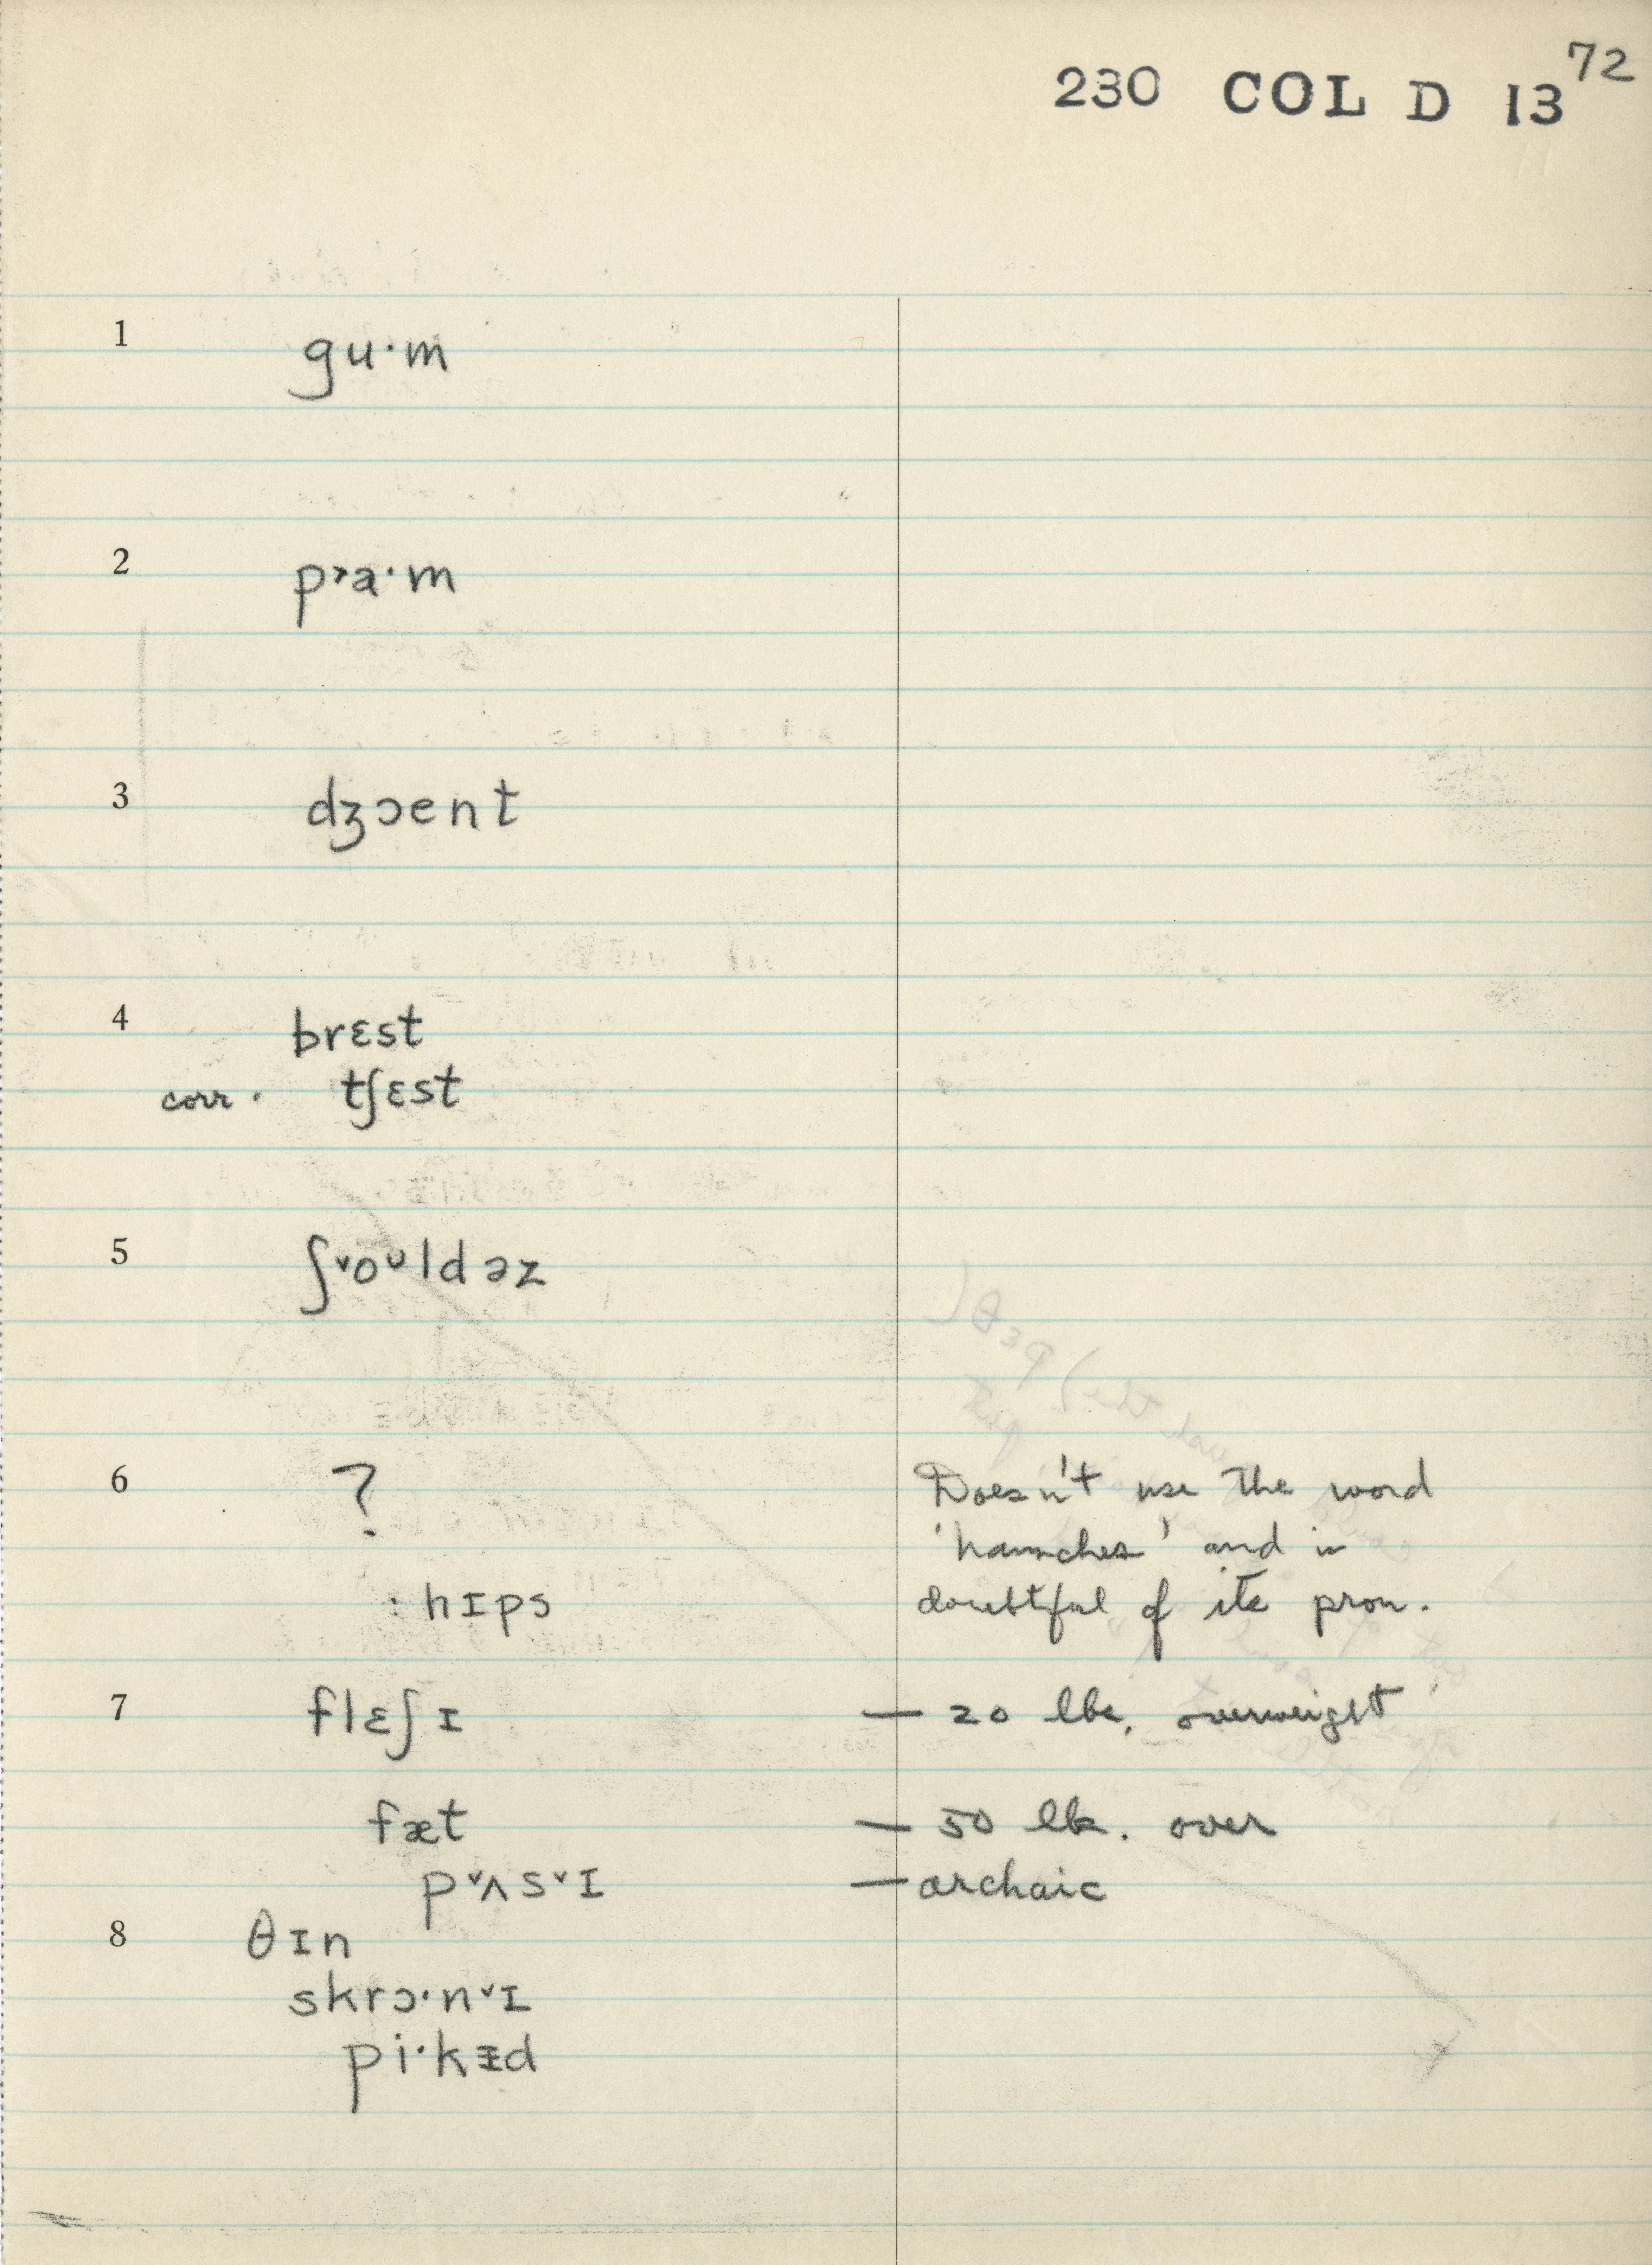 230 COL D 13 72
1 gu·m
2 p˃a·m
3 dʒɔent
4 brɛst
corr. tʃɛst
5 ʃ˅oᴜldəz
6 ? Doesn't use the word
'haunches' and is
: hɪps doubtful of its pron.
7 flɛʃɪ — 20 lbs. overweight
fæt — 50 lb. over
p˅ʌs˅ɪ — archaic
8 θɪn
skrɔ·n˅ɪ
pi·kᵻd